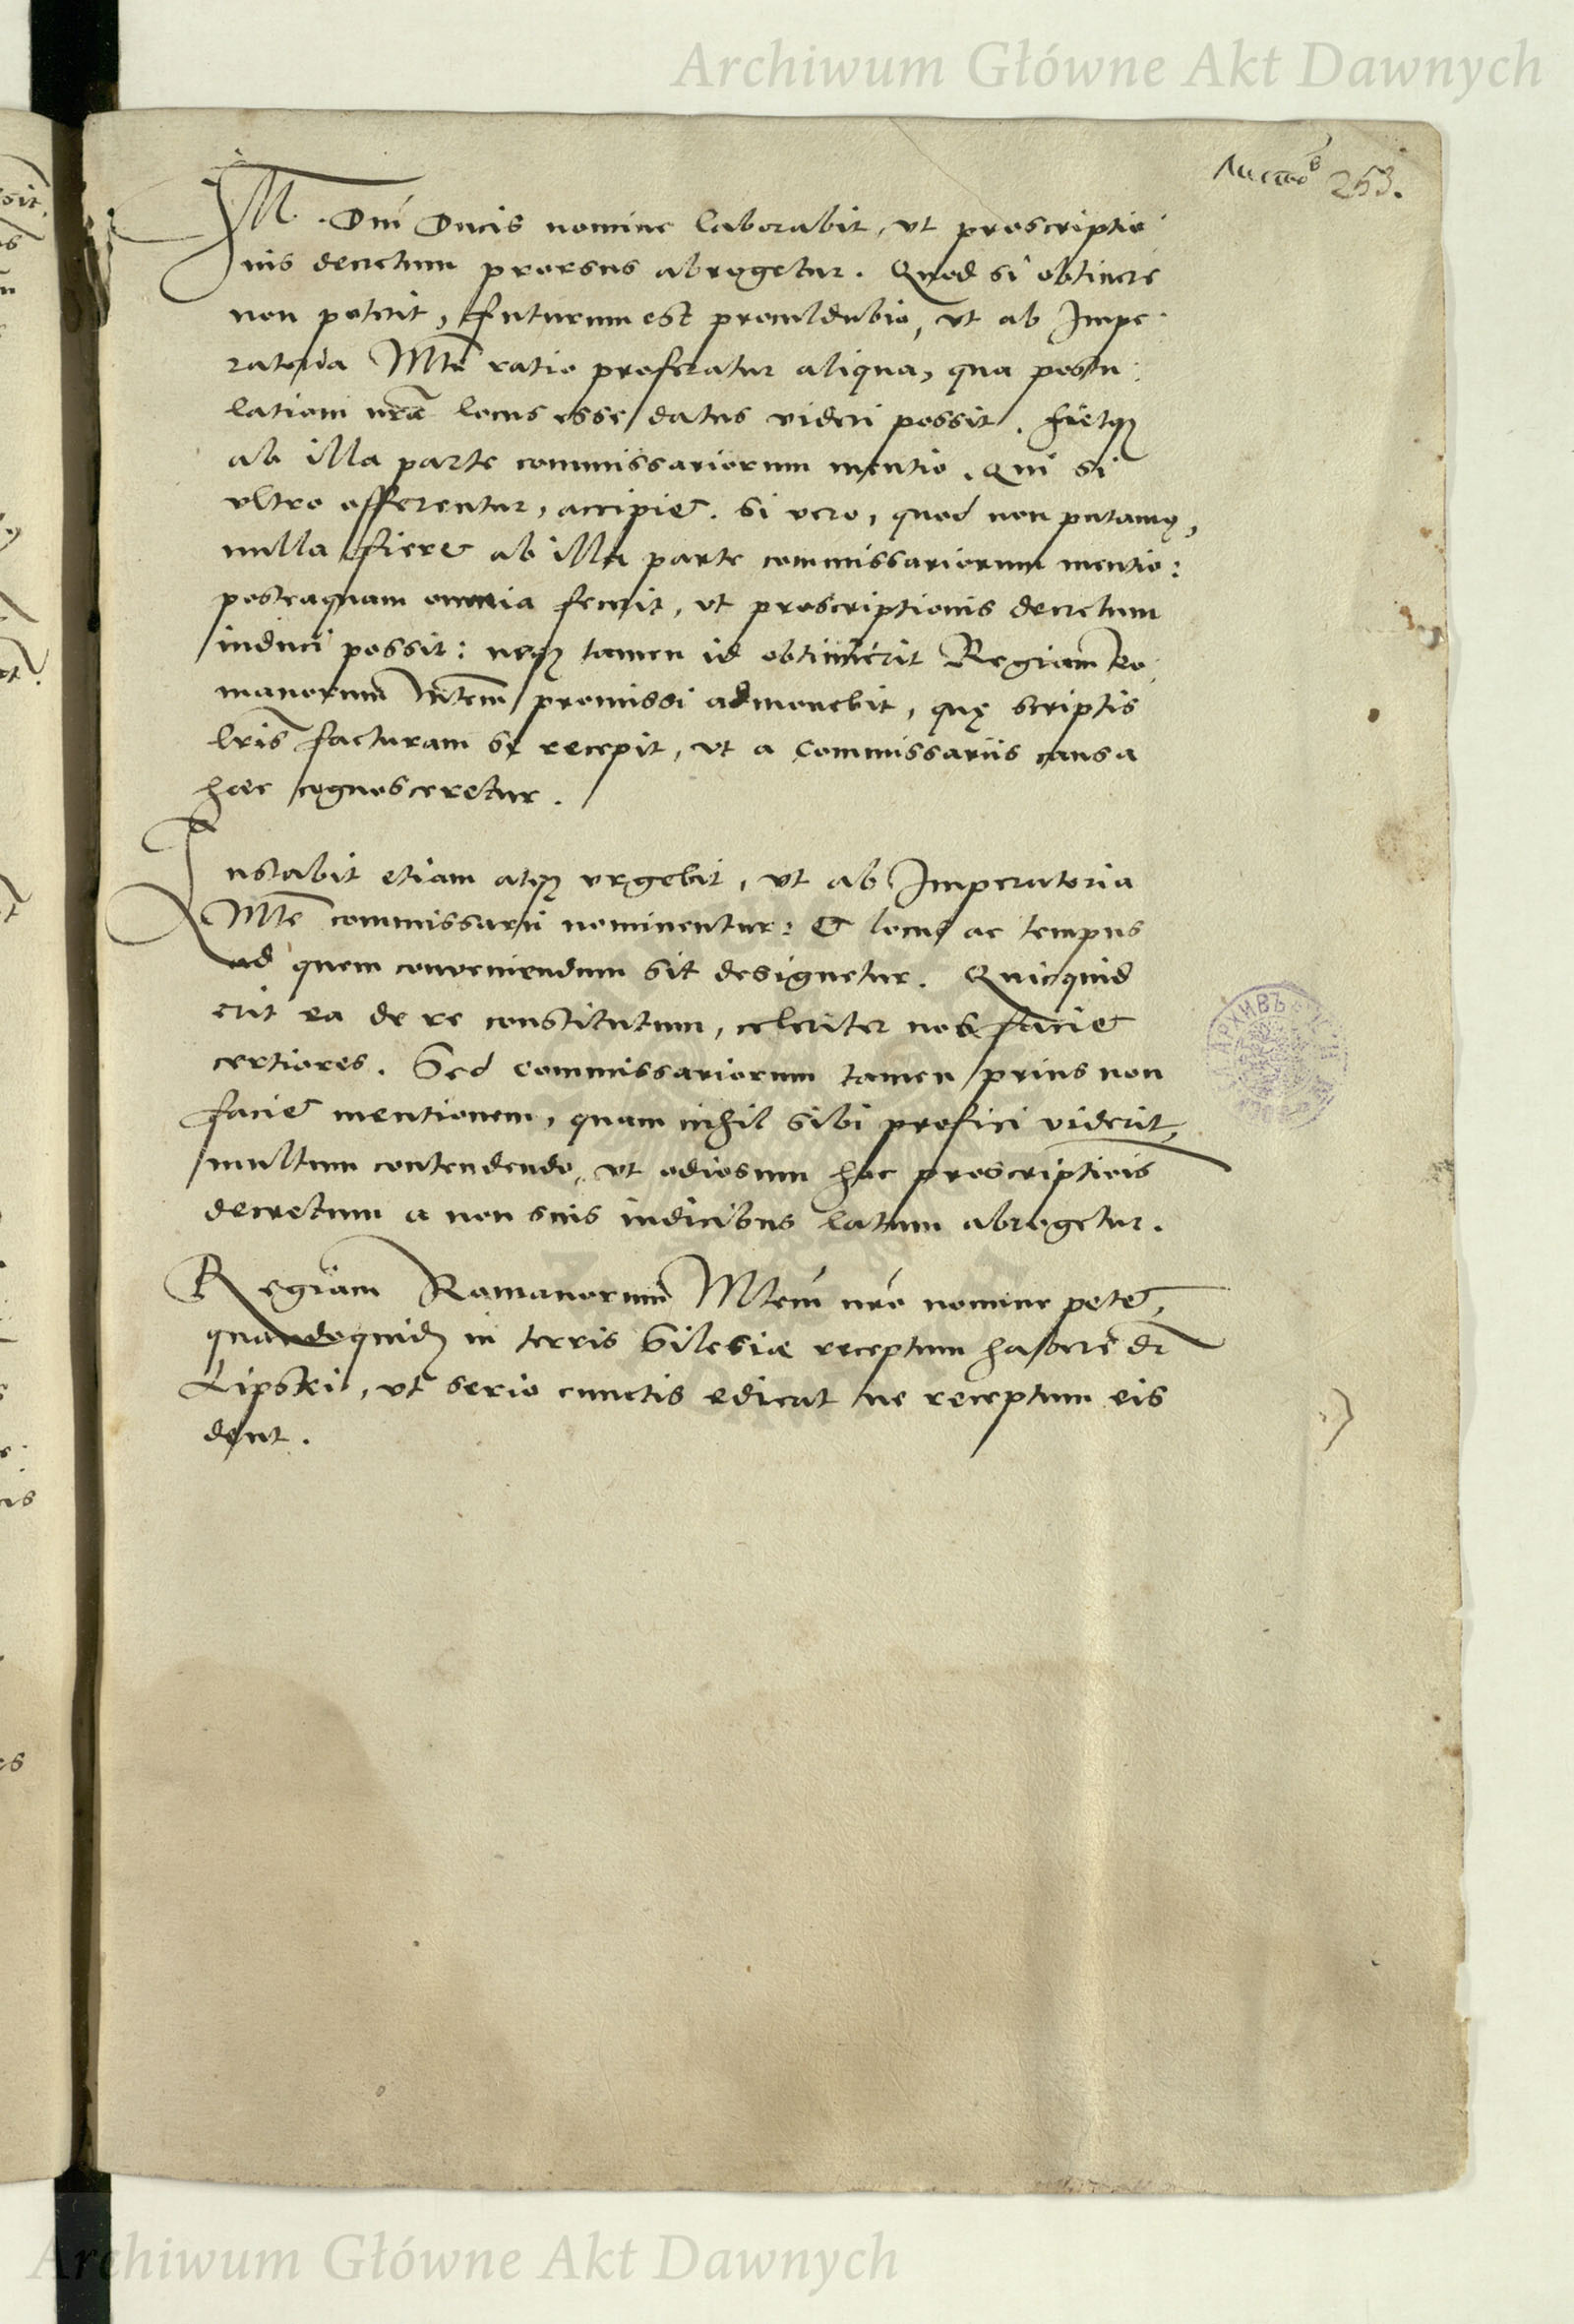 Archiwum Główne Akt Dawnych
Листовъ 253.
Ill. Dni Ducis nomine laborabit, vt proscriptio
nis decretum prorsus abrogetur. Quod si obtinere
non poterit, futurum est proculdubio, vt ab Impe
ratoria Mte ratio proferatur aliqua, qua postu
lationi nrae locus esse datus videri possit. Fietqz
ab illa parte commissariorum mentio. Qui si
vltro offerentur, accipiet. Si vero, quod non putamq,
nulla fieret ab illa parte commissariorum mentio:
posteaquam omnia fecerit, vt proscriptionis decretum
induci possit: neqz tamen id obtinuerit Regiam Ro
manorum Mtem promissi admonebit, quę scriptis
lris facturam se recepit, vt a Commissariis causa
haec cognosceretur.
Instabit etiam atqz vrgebit, vt ab Imperatoria
Mte commissarii nominentur: et locus ac tempus
ad quem conveniendum sit designetur. Quicquid
erit ea de re constitutum, celeriter nos faciet
certiores. Sed commissariorum tamen prius non
faciet mentionem, quam nihil sibi profici viderit,
multum contendendo, vt odiosum hoc proscriptiois
decretum a non suis iudicibus latum abrogetur.
Regiam Romanorum Mtem nro nomine petet,
quandoquidz in terris Silesiae receptum habere dr
Lipski, vt serio cunctis edicat ne receptum eis
dent.
Archiwum Główne Akt Dawnych